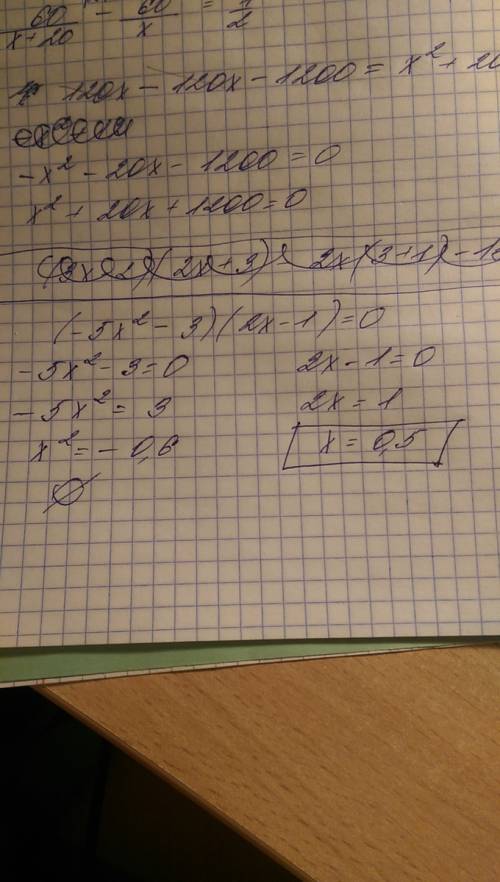 60/(x+20) - 60/x = 1/2
120x - 120x - 1200 = x² + 20
-x² - 20x - 1200 = 0
x² + 20x + 1200 = 0
(2x+3) 2x(3+1) - 1
(-5x² - 3)(2x - 1) = 0
-5x² - 3 = 0 2x - 1 = 0
-5x² = 3 2x = 1
x² = -0,6 x = 0,5
∅